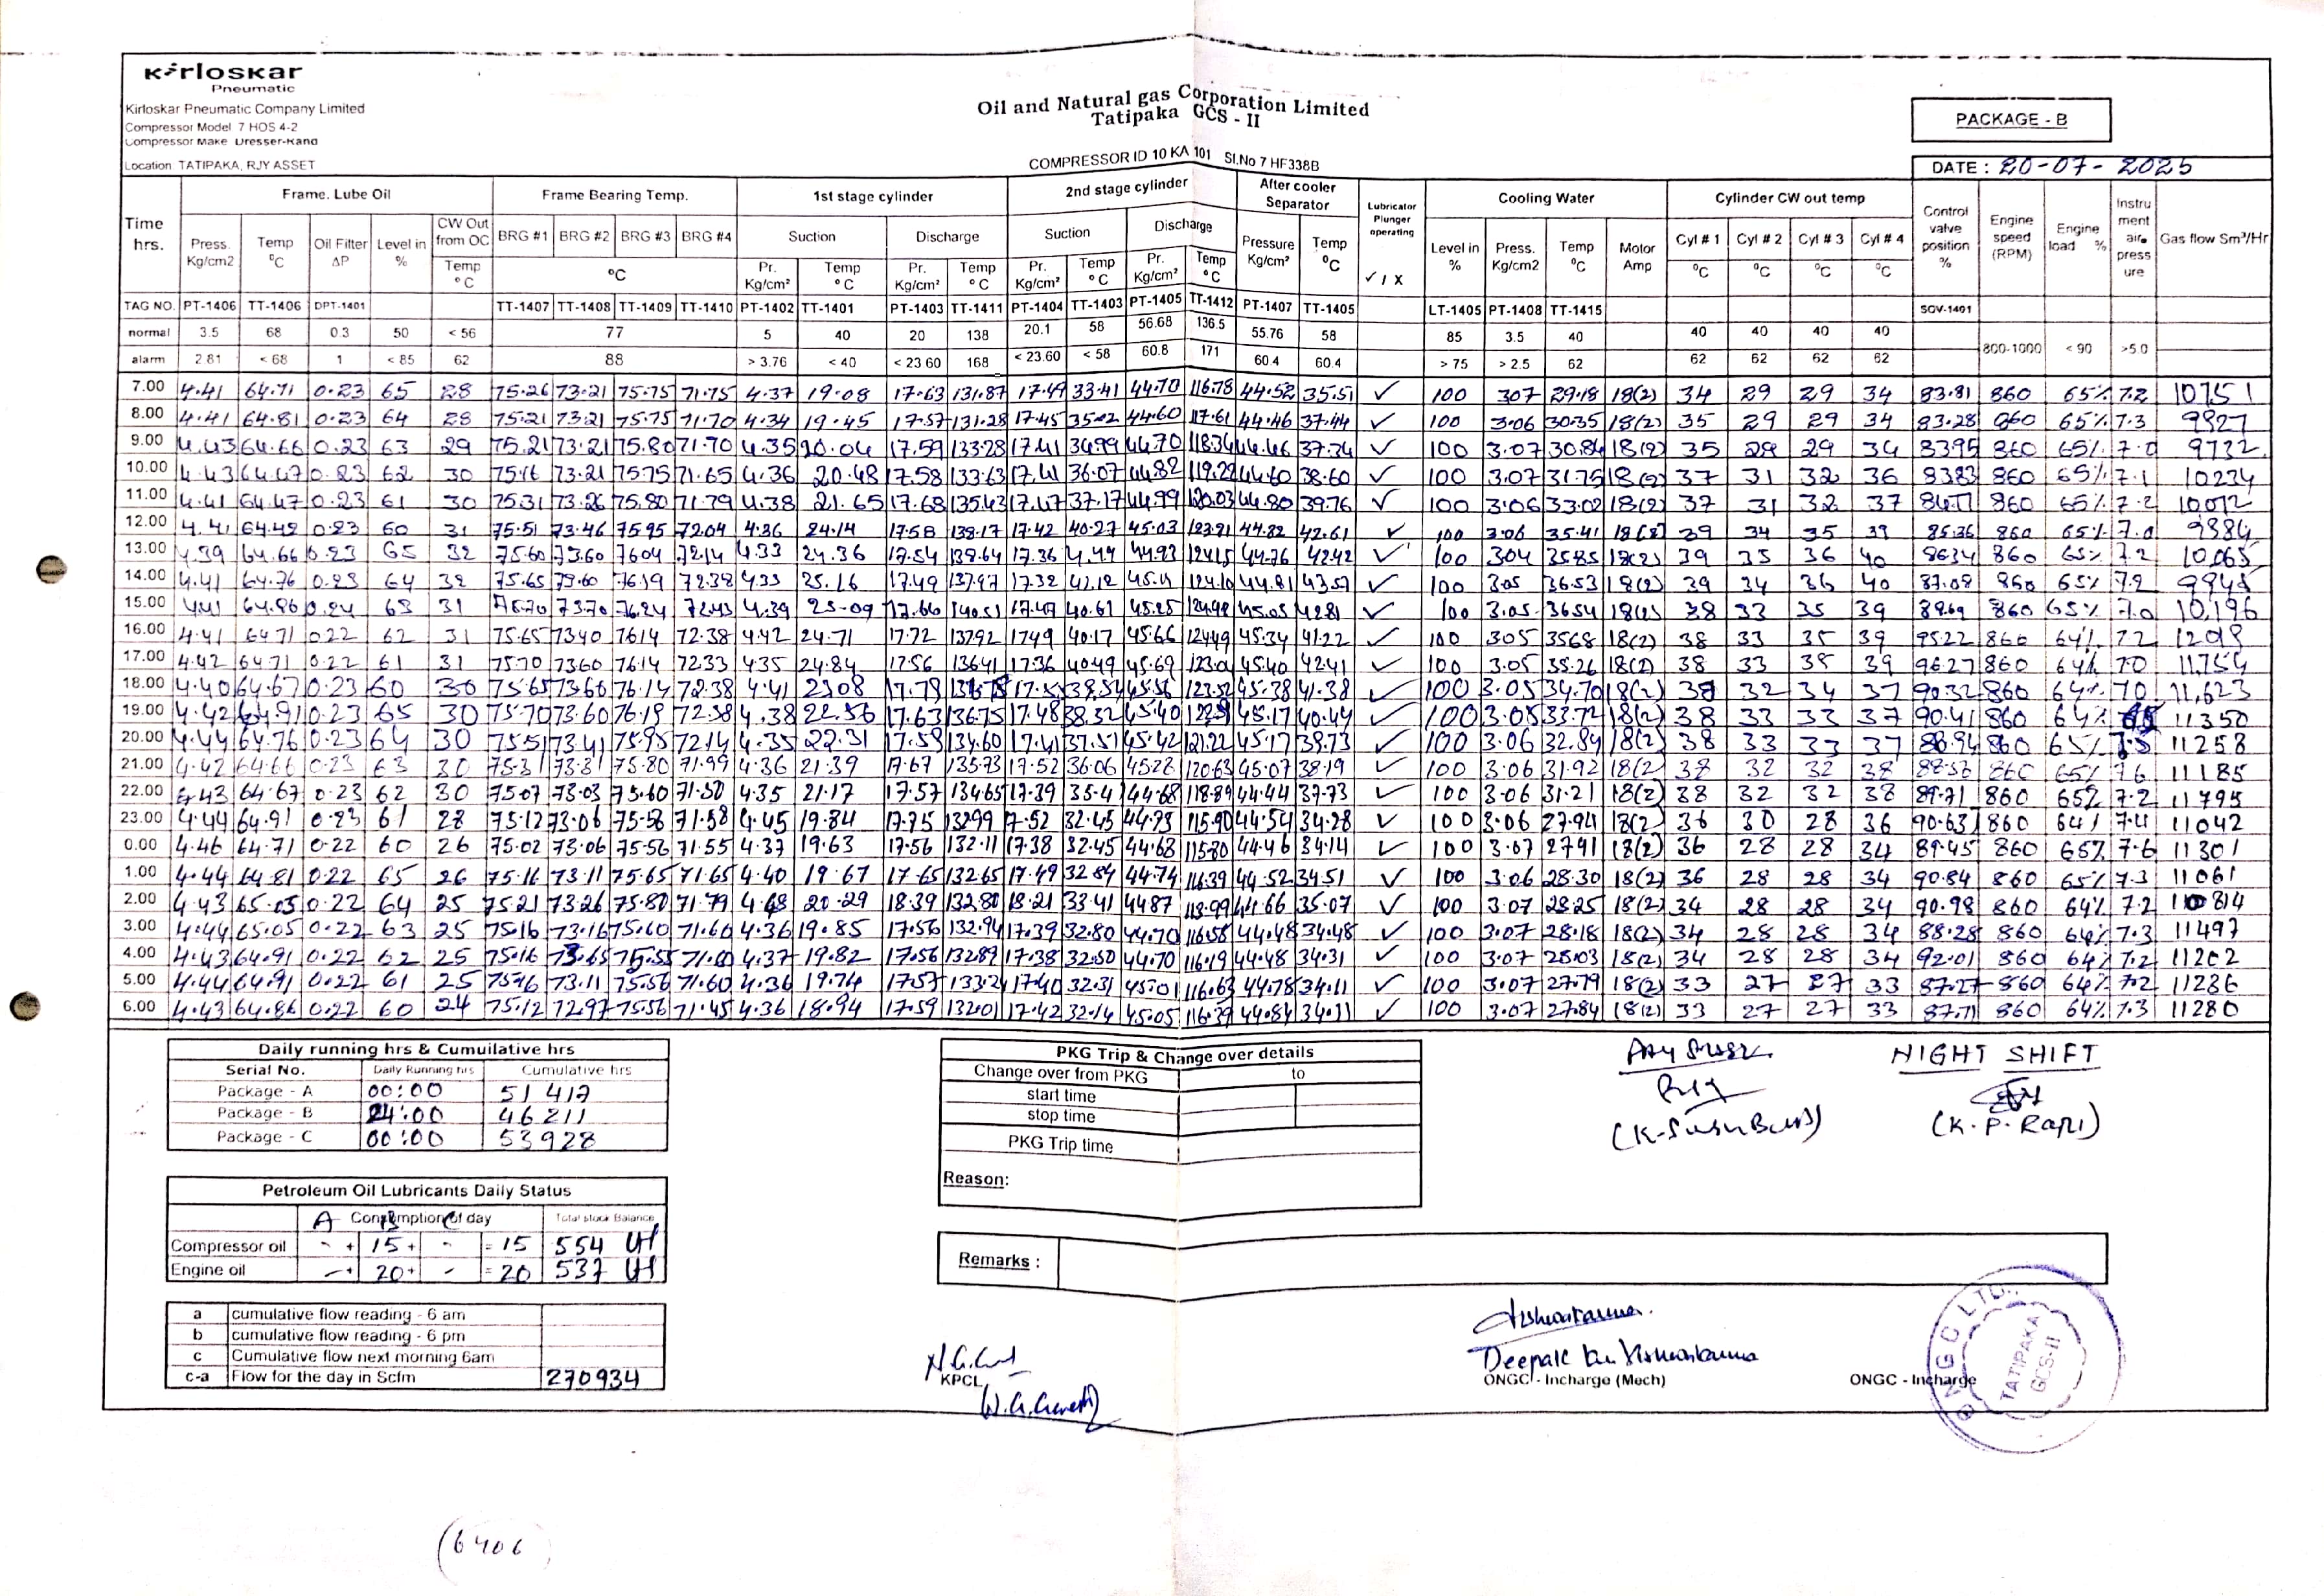 Kirloskar
Pneumatic
Kirloskar Pneumatic Company Limited
Compressor Model 7 HOS 4-2
Compressor Make Dresser-Rand
Location TATIPAKA, RJY ASSET
Oil and Natural gas Corporation Limited
Tatipaka GCS - II
COMPRESSOR ID 10 KA 101 Sl.No 7 HF338B
PACKAGE - B
DATE : 20-07-2025
Time hrs. Frame. Lube Oil Frame Bearing Temp. 1st stage cylinder 2nd stage cylinder After cooler Separator Lubricator Plunger operating Cooling Water Cylinder CW out temp Control valve position % Engine speed (RPM) Engine load % Instru ment air press ure Gas flow Sm³/Hr
Press. Kg/cm2 Temp °C Oil Filter ΔP Level in % CW Out from OC BRG #1 BRG #2 BRG #3 BRG #4 Suction Discharge Suction Discharge Pressure Kg/cm² Temp °C Level in % Press. Kg/cm2 Temp °C Motor Amp Cyl # 1 Cyl # 2 Cyl # 3 Cyl # 4
Temp °C °C Pr. Kg/cm² Temp °C Pr. Kg/cm² Temp °C Pr. Kg/cm² Temp °C Pr. Kg/cm² Temp °C ✓ / X °C °C °C °C
TAG NO. PT-1406 TT-1406 DPT-1401 TT-1407 TT-1408 TT-1409 TT-1410 PT-1402 TT-1401 PT-1403 TT-1411 PT-1404 TT-1403 PT-1405 TT-1412 PT-1407 TT-1405 LT-1405 PT-1408 TT-1415 SCV-1401
normal 3.5 68 0.3 50 < 56 77 5 40 20 138 20.1 58 56.68 136.5 55.76 58 85 3.5 40 40 40 40 40
alarm 2.81 < 68 1 < 85 62 88 > 3.76 < 40 < 23.60 168 < 23.60 < 58 60.8 171 60.4 60.4 > 75 > 2.5 62 62 62 62 62 800-1000 < 90 >5.0
7.00 4.41 64.71 0.23 65 28 75.26 73.21 75.75 71.75 4.37 19.08 17.63 131.87 17.49 33.41 44.70 116.78 44.52 35.51 ✓ 100 307 29.18 18(2) 34 29 29 34 83.81 860 65% 7.2 10751
8.00 4.41 64.81 0.23 64 28 75.21 73.21 75.75 71.70 4.34 19.45 17.57 131.28 17.45 35.02 44.60 117.61 44.46 37.44 ✓ 100 3.06 30.35 18(2) 35 29 29 34 83.28 860 65% 7.3 9827
9.00 4.43 64.66 0.23 63 29 75.21 73.21 75.80 71.70 4.35 20.04 17.59 133.28 17.41 36.99 44.70 118.34 44.46 37.74 ✓ 100 3.07 30.84 18(2) 35 29 29 34 8395 860 65% 7.0 9732
10.00 4.43 64.67 0.23 62 30 75.16 73.21 75.75 71.65 4.36 20.48 17.58 133.63 17.41 36.07 44.82 119.22 44.60 38.60 ✓ 100 3.07 31.75 18(2) 37 31 32 36 8383 860 65% 7.1 10234
11.00 4.41 64.47 0.23 61 30 75.31 73.26 75.80 71.79 4.38 21.65 17.68 135.43 17.47 37.17 44.99 120.03 44.80 39.76 ✓ 100 3.06 33.02 18(2) 37 31 32 37 860 65% 7.2 10012
12.00 4.41 64.42 0.23 60 31 75.51 73.46 75.95 72.04 4.36 24.14 17.58 138.17 17.42 40.27 45.03 123.81 44.82 42.61 ✓ 100 3.06 35.41 18(2) 39 34 35 39 85.36 860 65% 7.0 9884
13.00 4.39 64.66 0.23 65 32 75.60 73.60 7604 72.14 4.33 24.36 17.54 138.64 17.36 44.93 44.76 42.42 ✓ 100 304 35.85 18(2) 39 35 36 40 8634 860 65% 7.2 10,065
14.00 4.41 64.76 0.23 64 32 75.65 73.60 76.19 72.38 4.33 25.16 17.49 137.97 17.32 41.12 124.10 44.81 43.57 ✓ 100 3.05 36.53 18(2) 39 34 36 40 87.08 860 65% 7.2 9945
15.00 4.41 64.86 0.24 63 31 75.70 73.70 76.24 72.43 4.39 25.09 17.66 140.51 17.47 40.61 45.25 124.98 45.05 42.81 ✓ 100 3.05 3654 18(2) 38 33 35 39 860 65% 7.0 10,196
16.00 4.41 64.71 0.22 62 31 75.65 7340 7614 72.38 4.42 24.71 17.72 13792 1749 40.17 45.66 124.49 45.34 41.22 ✓ 100 305 3568 18(2) 38 33 35 39 95.22 860 64% 7.2 12019
17.00 4.42 64.71 0.22 61 31 75.70 73.60 76.14 7233 4.35 24.84 17.56 13641 17.36 40.49 45.69 123.01 45.40 42.41 ✓ 100 3.05 35.26 18(2) 38 33 35 39 96.27 860 64% 7.0 11,754
18.00 4.40 64.67 0.23 60 30 75.65 73.60 76.14 72.38 4.41 23.08 17.79 17.51 38.54 45.56 123.52 45.38 41.38 ✓ 100 3.05 34.70 18(2) 38 32 34 37 90.32 860 64% 7.0 11,623
19.00 4.42 64.91 0.23 65 30 75.70 73.60 76.19 72.38 4.38 22.56 17.63 136.75 17.48 38.32 45.40 45.17 40.44 ✓ 100 3.05 33.72 18(2) 38 33 33 37 90.41 860 64% 11350
20.00 4.44 64.76 0.23 64 30 75.51 73.41 75.95 72.14 4.35 22.31 17.59 134.60 17.41 37.51 45.42 121.22 45.17 38.73 ✓ 100 3.06 32.84 18(2) 38 33 33 37 88.94 860 65% 7.5 11258
21.00 4.42 64.66 0.23 63 30 75.31 73.31 75.80 71.99 4.36 21.39 17.67 135.73 17.52 36.06 45.28 120.63 45.07 38.19 ✓ 100 3.06 31.92 18(2) 38 32 32 38 88.56 860 65% 7.6 11185
22.00 4.43 64.67 0.23 62 30 75.07 73.03 75.60 71.50 4.35 21.17 17.57 134.65 17.39 35.41 44.68 118.89 44.44 37.73 ✓ 100 3.06 31.21 18(2) 38 32 32 38 89.71 860 65% 7.2 11795
23.00 4.44 64.91 0.23 61 28 75.12 73.06 75.56 71.58 4.45 19.84 17.75 13299 17.52 32.45 44.73 115.90 44.54 34.28 ✓ 100 3.06 27.94 18(2) 36 30 28 36 90.63 860 641 7.4 11042
0.00 4.46 64.71 0.22 60 26 75.02 73.06 75.56 71.55 4.37 19.63 17.56 132.11 17.38 32.45 44.68 115.80 44.46 34.14 ✓ 100 3.07 2791 18(2) 36 28 28 34 89.45 860 65% 7.6 11301
1.00 4.44 64.81 0.22 65 26 75.16 73.11 75.65 71.65 4.40 19.67 17.65 132.65 17.49 32.84 44.74 116.39 44.52 34.51 ✓ 100 3.06 28.30 18(2) 36 28 28 34 90.84 860 65% 7.3 11061
2.00 4.43 65.05 0.22 64 25 75.21 73.26 75.80 71.79 4.68 20.29 18.39 132.80 18.21 33.41 4487 118.99 44.66 35.07 ✓ 100 3.07 28.25 18(2) 34 28 28 34 90.98 860 64% 7.2 110814
3.00 4.44 65.05 0.22 63 25 75.16 73.16 75.60 71.60 4.36 19.85 17.56 132.94 17.39 32.80 44.70 116.58 44.48 34.48 ✓ 100 3.07 28.18 18(2) 34 28 28 34 88.28 860 64% 7.3 11497
4.00 4.43 64.91 0.22 62 25 75.16 75.55 71.60 4.37 19.82 17.56 132.89 17.38 32.50 44.70 116.19 44.48 34.31 ✓ 100 3.07 28.03 18(2) 34 28 28 34 92.01 860 64% 7.2 11202
5.00 4.44 64.91 0.22 61 25 7516 73.11 75.56 71.60 4.36 19.74 17.57 133.21 17.40 32.31 45.01 116.63 44.78 34.11 ✓ 100 3.07 27.79 18(2) 33 27 27 33 87.27 860 64% 7.2 11236
6.00 4.43 64.86 0.22 60 24 75.12 72.97 75.56 71.45 4.36 18.94 17.59 132.01 17.42 32.14 45.05 116.39 44.84 34.11 ✓ 100 3.07 27.84 18(2) 33 27 27 33 87.71 860 64% 7.3 11280
Daily running hrs & Cumuilative hrs
Serial No. Daily Running hrs Cumulative hrs
Package - A 00:00 51417
Package - B 24:00 46211
Package - C 00:00 53928
PKG Trip & Change over details
Change over from PKG to
start time
stop time
PKG Trip time
Reason:
NIGHT SHIFT
(K.P. Raju)
Petroleum Oil Lubricants Daily Status
A B C Consumption of day Total stock Balance
Compressor oil - + 15 + - = 15 554 Lit
Engine oil - + 20 + - = 20 537 Lit
Remarks :
a cumulative flow reading - 6 am
b cumulative flow reading - 6 pm
c Cumulative flow next morning 6am
c-a Flow for the day in Scfm 270934
KPCL
Vishwakarma
Deepak Kr Vishwakarma
ONGC - Incharge (Mech)
ONGC - Incharge
ONGC LTD.
TATIPAKA
GCS-II
(6406)